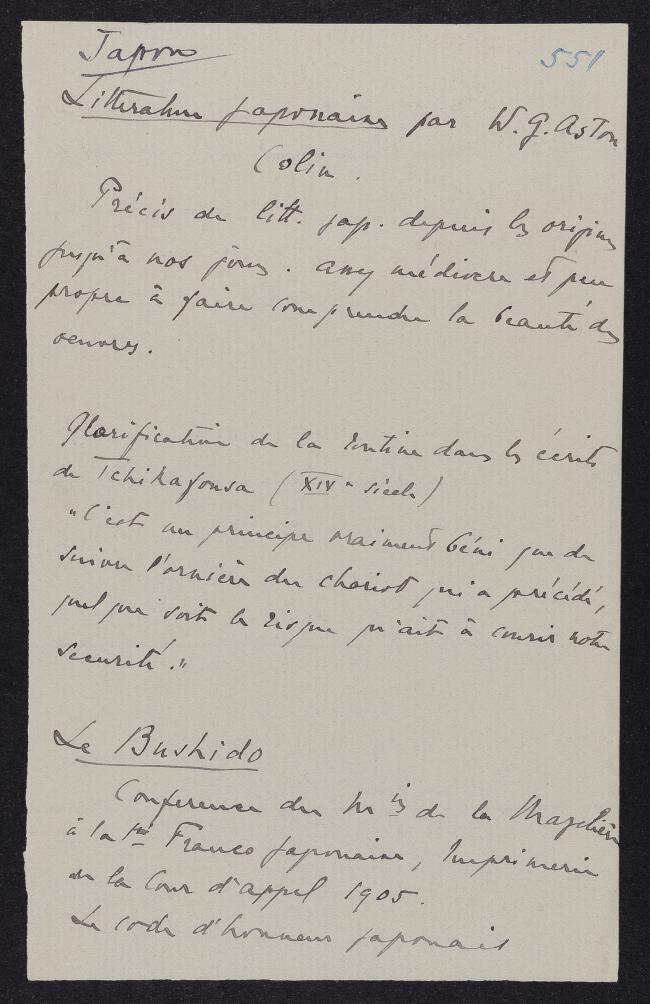 Japon
551
Littérature japonaise par W. G. Aston
Colin.
Précis de litt. jap. depuis les origines
jusqu'à nos jours. assez médiocre et peu
propre à faire comprendre la beauté des
oeuvres.
Glorification de la routine dans les écrits
de Tchikafousa (XIVe siècle)
"C'est un principe vraiment béni que de
suivre l'ornière du chariot qui a précédé,
quel que soit le risque qu'ait à courir notre
sécurité."
Le Bushido
Conférence du Mis de la Mazelière
à la Sté Franco Japonaise, Imprimerie
de la Cour d'appel 1905.
Le code d'honneur japonais